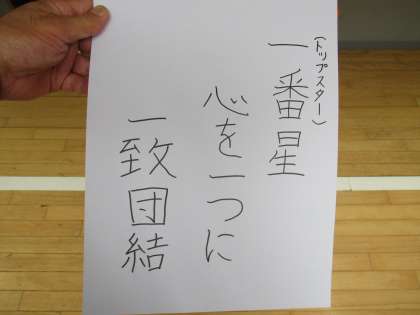 (トップスター)
一番星
心を一つに
一致団結